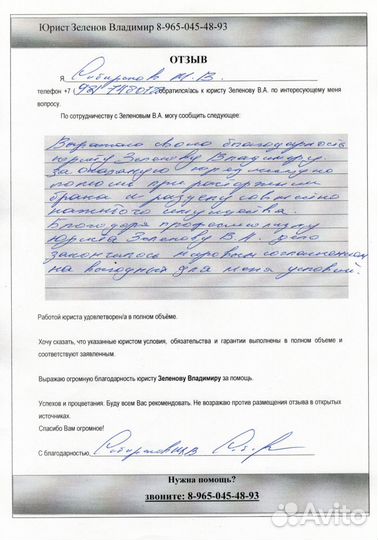 Юрист Зеленов Владимир 8-965-045-48-93
ОТЗЫВ
Я,
телефон +7 ( обратился/ась к юристу Зеленову В.А. по интересующему меня
вопросу.
По сотрудничеству с Зеленовым В.А. могу сообщить следующее:
Выражаю свою благодарность
юристу Зеленову Владимиру
за оказанную
помощь при расторжении
брака и разделу совместно
нажитого имущества.
Благодаря
юриста Зеленову В.А. дело
закончилось мировым соглашением
на выгодных для меня условий.
Работой юриста удовлетворен/а в полном объёме.
Хочу сказать, что указанные юристом условия, обязательства и гарантии выполнены в полном объеме и
соответствуют заявленным.
Выражаю огромную благодарность юристу Зеленову Владимиру за помощь.
Успехов и процветания. Буду всем Вас рекомендовать. Не возражаю против размещения отзыва в открытых
источниках.
Спасибо Вам огромное!
С благодарностью,
Нужна помощь?
звоните: 8-965-045-48-93
Avito